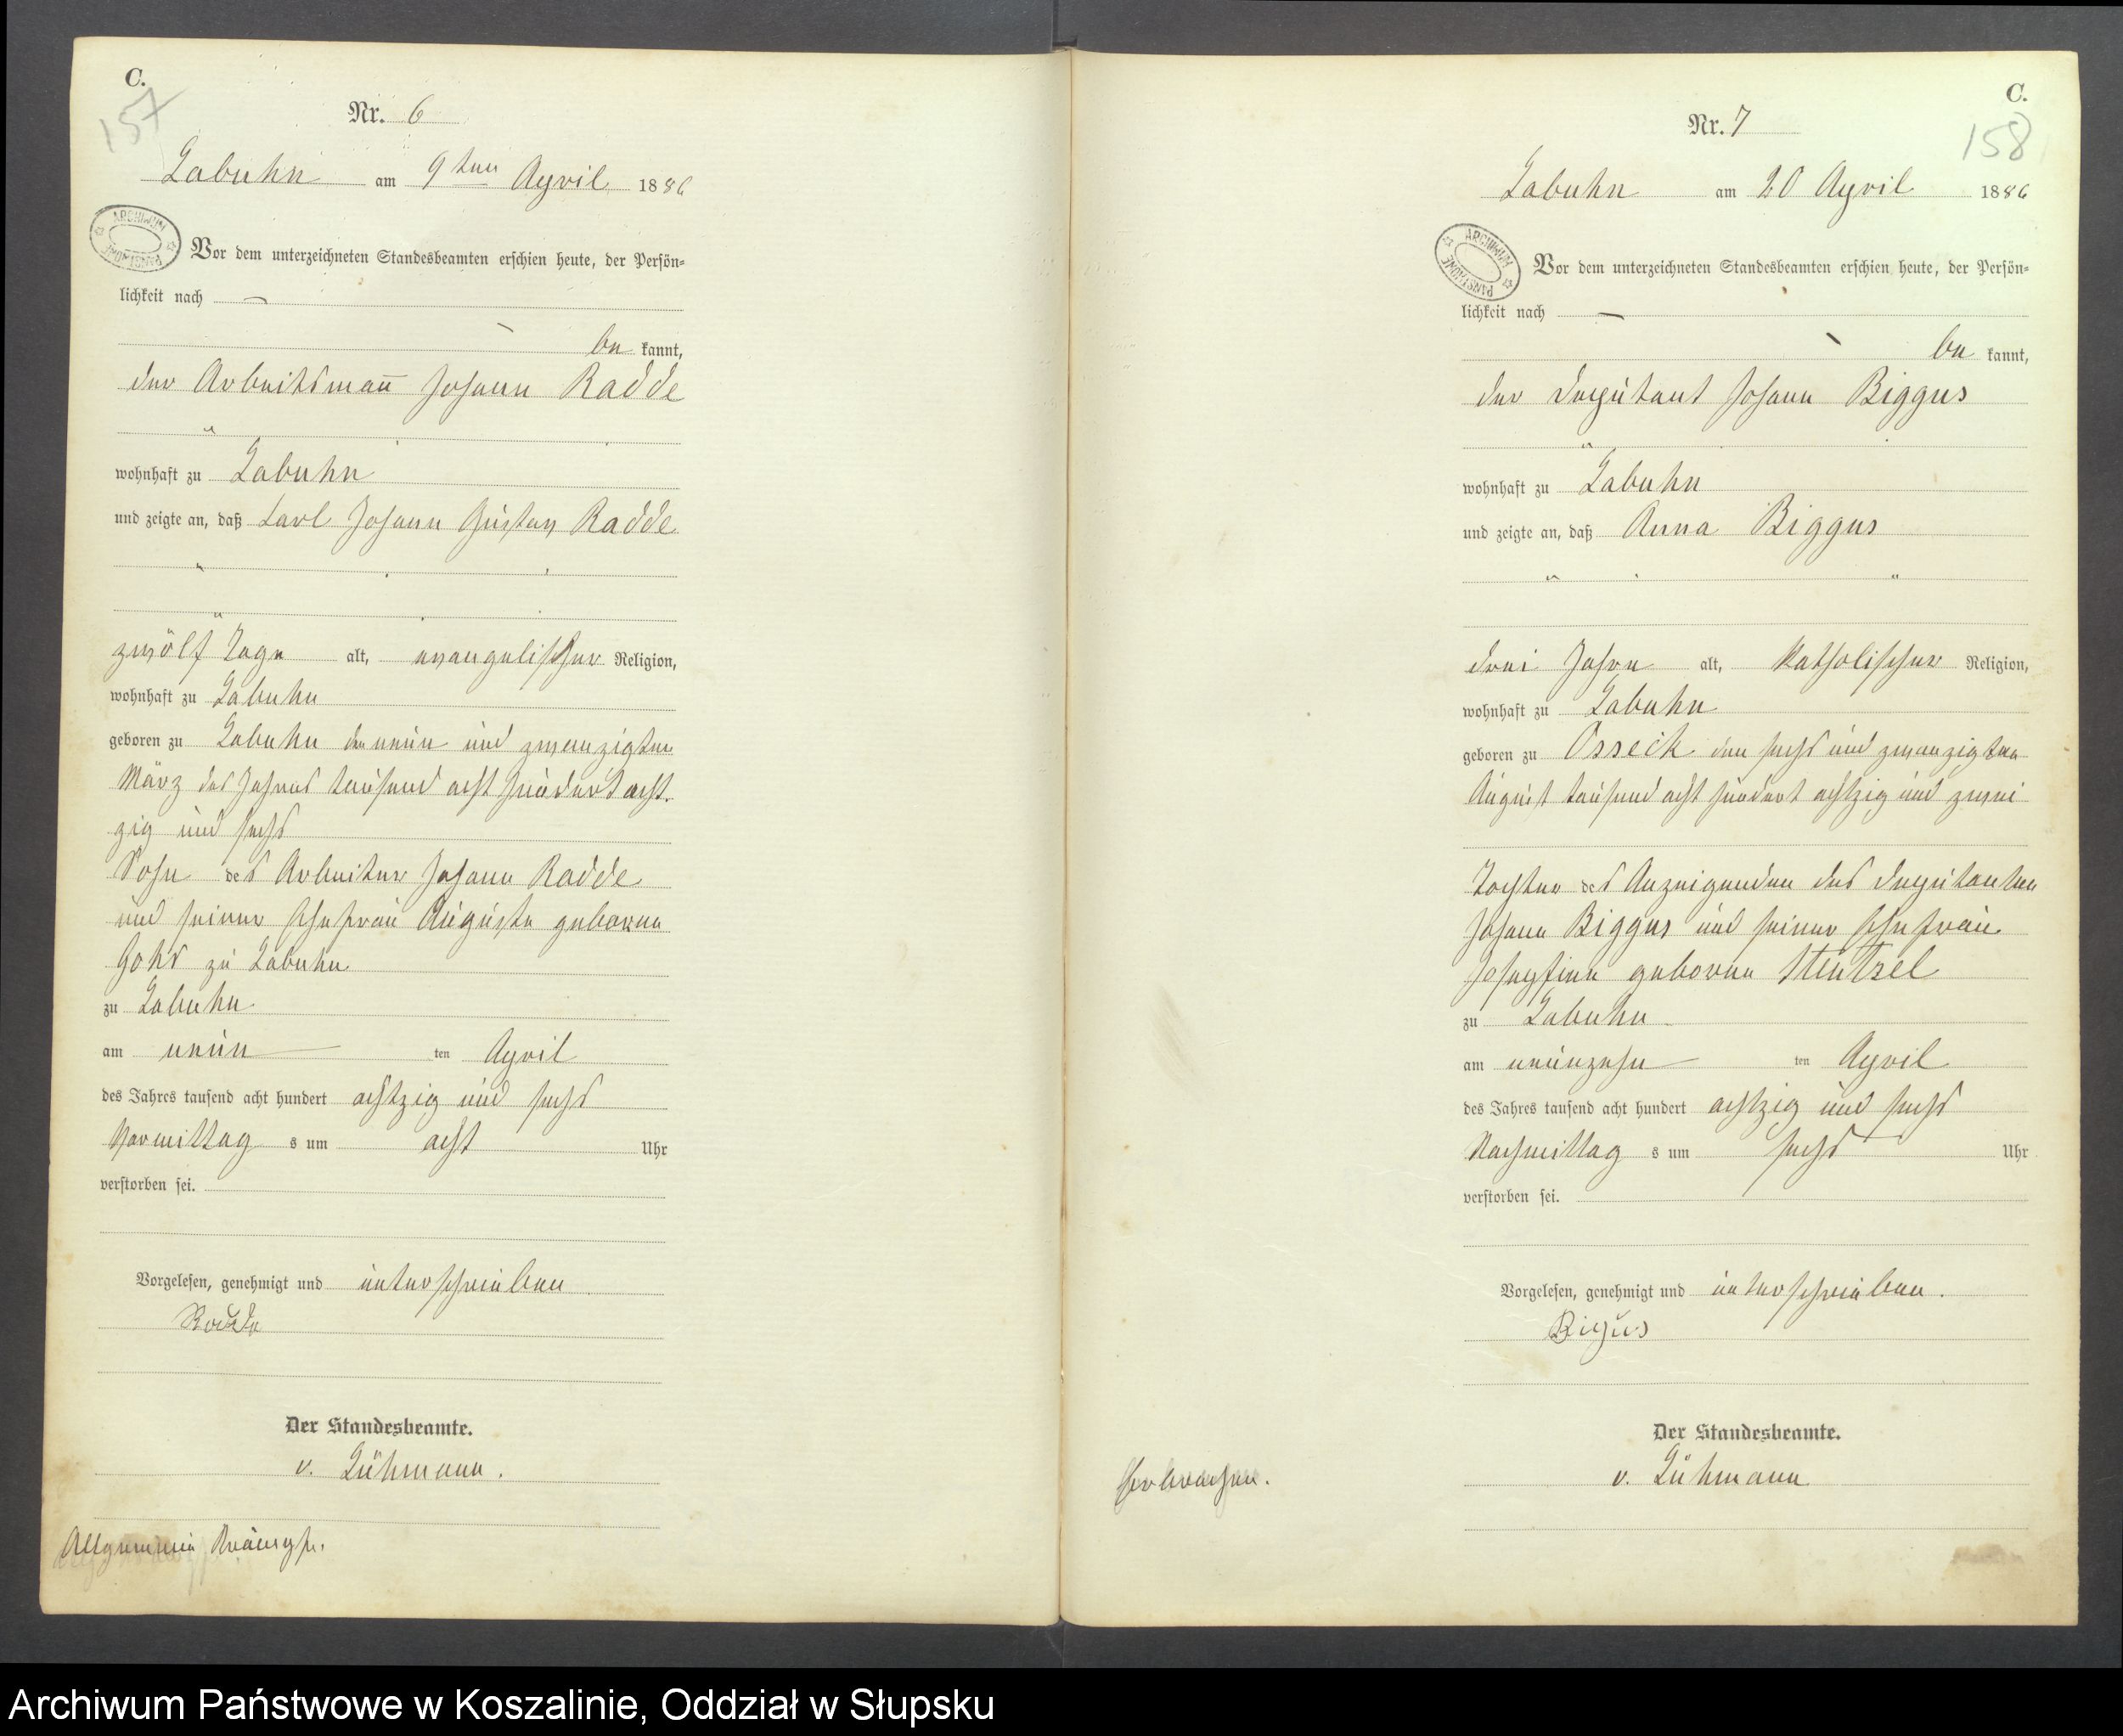 C.
157
Nr. 6
Labuhn am 9ten April 1886
ARCHIWUM PAŃSTWOWE
Vor dem unterzeichneten Standesbeamten erschien heute, der Persön=
lichkeit nach —
be kannt,
der Arbeitsmañ Johann Radde
wohnhaft zu Labuhn
und zeigte an, daß Carl Johann Gustav Radde
zwölf Tage alt, evangelischer Religion,
wohnhaft zu Labuhn
geboren zu Labuhn den neun und zwanzigten
März des Jahres tausend acht hundert acht-
zig und sechs
Sohn des Arbeiter Johann Radde
und seiner Ehefrau Auguste geborene
Gohs zu Labuhn
zu Labuhn
am neun ten April
des Jahres tausend acht hundert achtzig und sechs
Vormittag s um acht Uhr
verstorben sei.
Vorgelesen, genehmigt und unterschrieben
Radde
Der Standesbeamte.
v. Lühmann.
Allgemein
C.
158
Nr. 7
Labuhn am 20 April 1886
ARCHIWUM PAŃSTWOWE
Vor dem unterzeichneten Standesbeamten erschien heute, der Persön=
lichkeit nach —
be kannt,
der Deputant Johann Biggus
wohnhaft zu Labuhn
und zeigte an, daß Anna Biggus
drei Jahre alt, katholischer Religion,
wohnhaft zu Labuhn
geboren zu Osseck den sechs und zwanzigten
August tausend acht hundert achtzig und zwei
Tochter des Anzeigenden des Deputanten
Johann Biggus und seiner Ehefrau
Josephine geborene Stentzel
zu Labuhn
am neunzehn ten April
des Jahres tausend acht hundert achtzig und sechs
Nachmittag s um sechs Uhr
verstorben sei.
Vorgelesen, genehmigt und unterschrieben.
Bigus
Der Standesbeamte.
v. Lühmann
Erbrechen.
Archiwum Państwowe w Koszalinie, Oddział w Słupsku